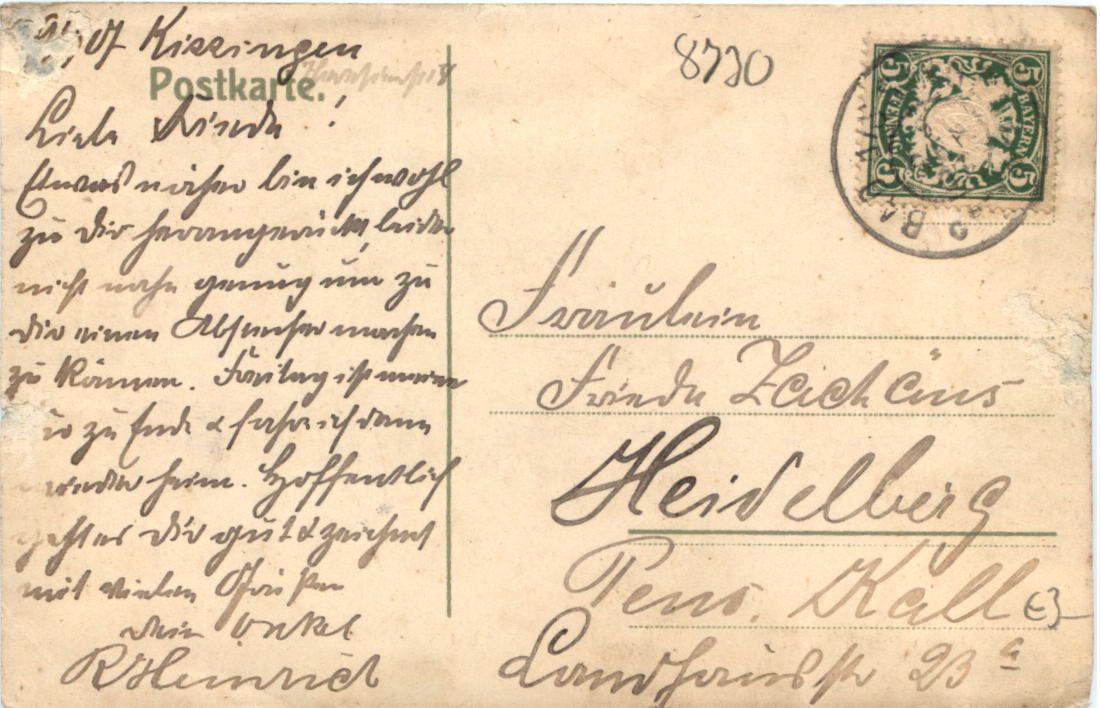 07 Kissingen
Postkarte.
Liebe Frieda!
Etwas näher bin ich wohl
zu Dir herangerückt, leider
nicht nahe genug um zu
Dir einen Abstecher machen
zu können. Freitag ist meine
zu Ende & fahre ich dann
wieder heim. Hoffentlich
geht es Dir gut & zeichnet
mit vielen Grüßen
Dein Onkel
R Heinrich
8730
5 5
BAYERN
PFENNIG
5 5
BAD
2
Fräulein
Frieda Zachäus
Heidelberg
Pens. Kall
Landhausstr 23a